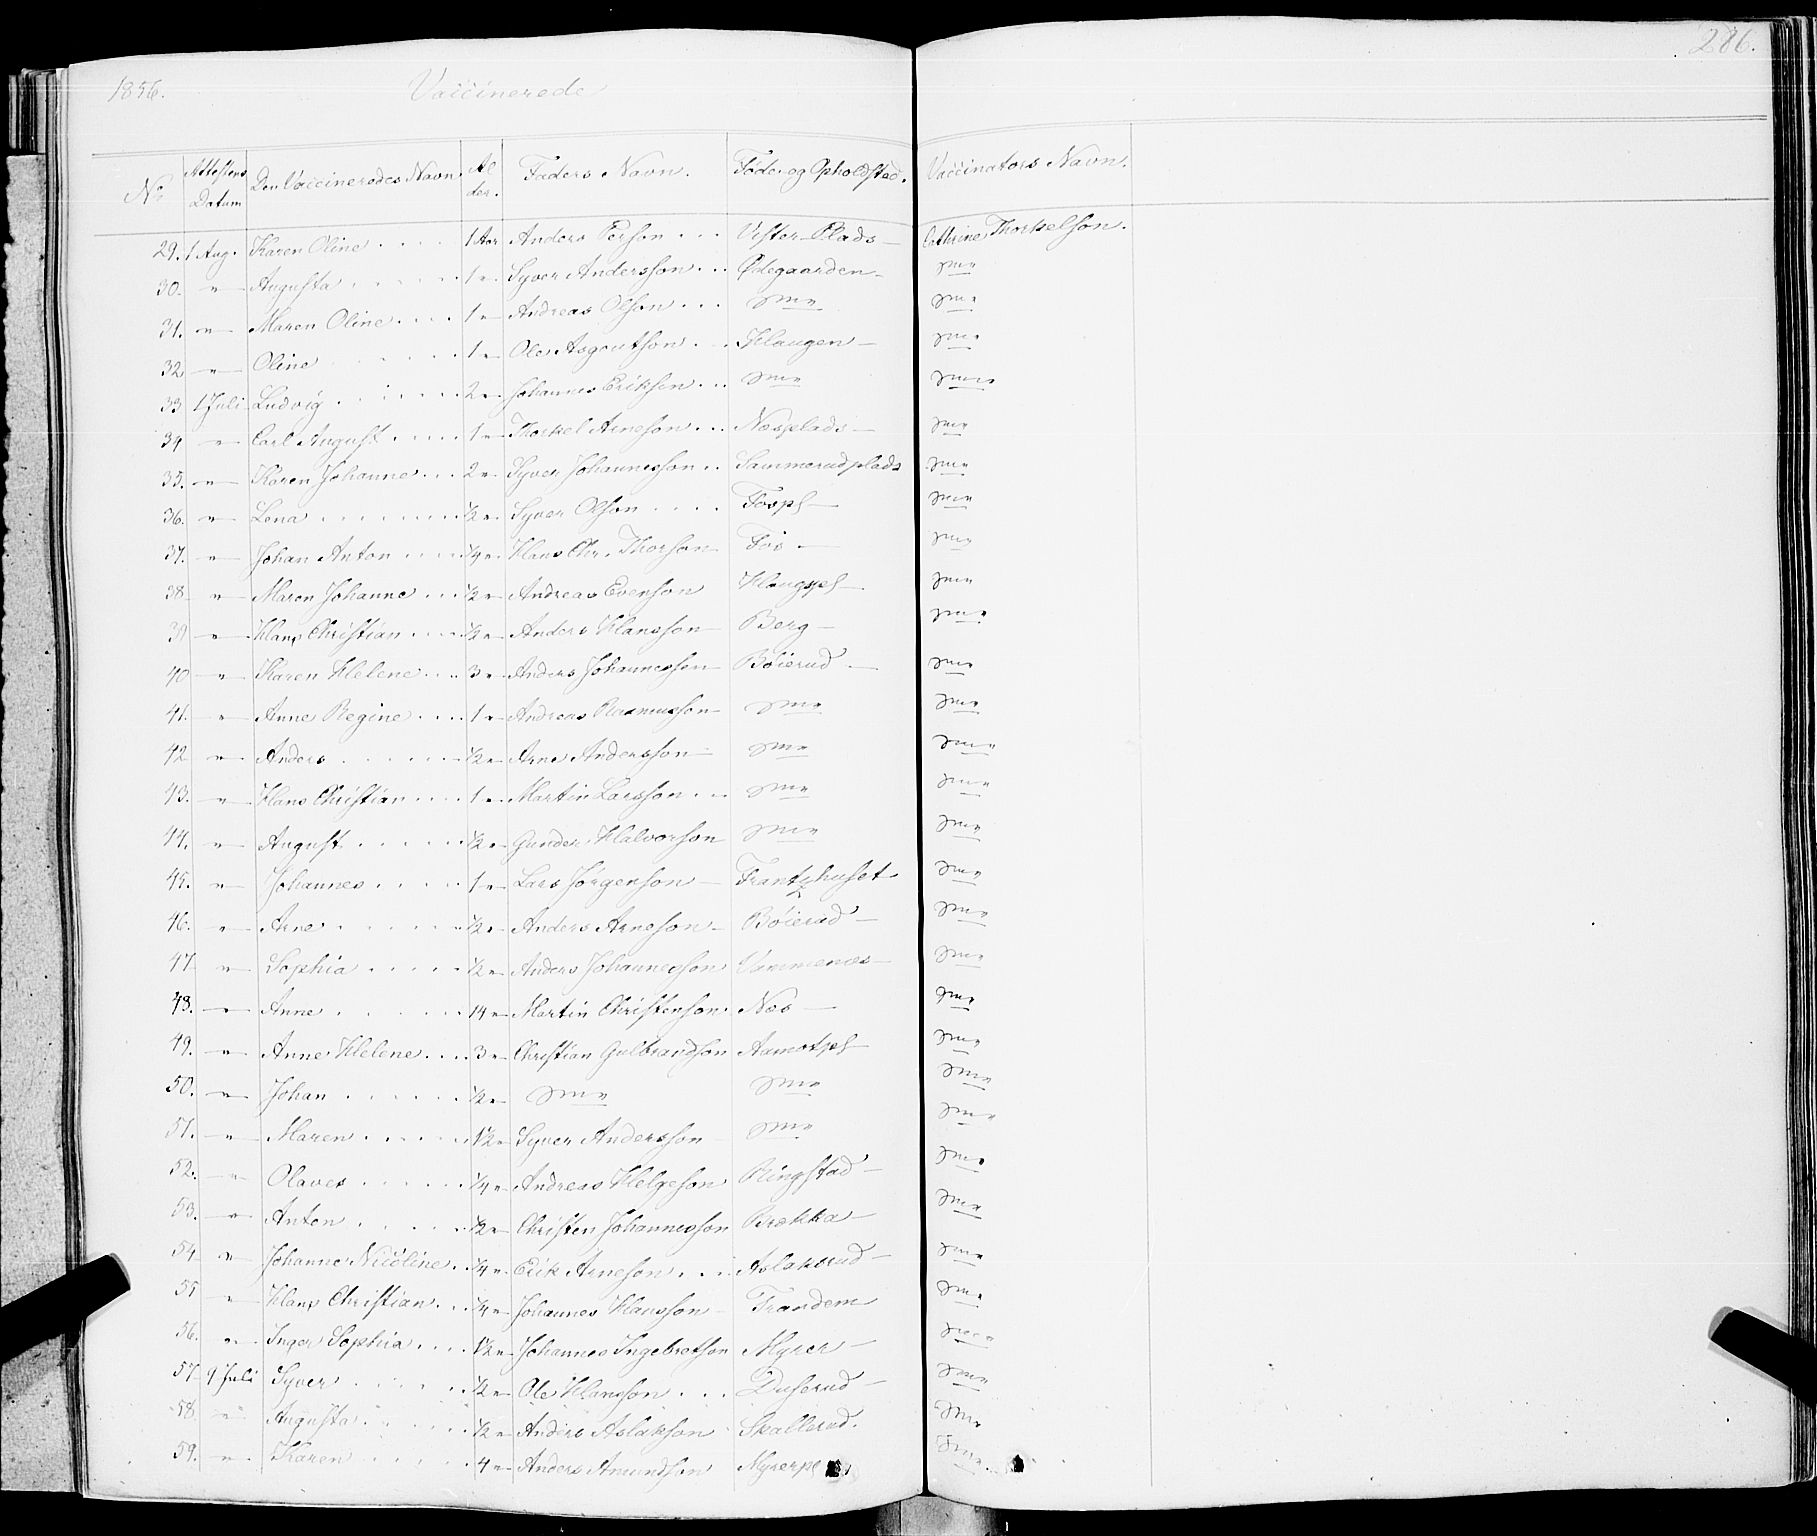 1856. Vaccinerede 286.
No Attestens Datum Den Vaccineredes Navn Alder. Faders Navn. Føde- og Opholdsted. Vaccinators Navn.
29. 1 Aug. Karen Oline . . . . 1 Aar Anders Person . . . Vister Plads — Cathrine Thorkelson.
30. " Augusta . . . . . 1 " Syver Andersson . . . Ødegaarden —
31. " Maren Oline . . . . 1 " Andreas Olson . . .
32 " Oline . . . . 1 " Ole Asgoutson . . . Haugen —
33 1 Juli Ludvig . . . . . . 2 " Johannes Erikson . . .
34 " Carl August . . . . . 1 " Thorkel Arneson . . . Næsplads —
35. " Karen Johanne . . . 2 " Syver Johannesson . . Sammerudplads
36. " Lena . . . . . . . . ½ " Syver Olson . . . . Fospl —
37. " Johan Anton . . . . ¼ " Hans Chr. Thorson Fos —
38 " Maren Johanne . . . ½ " Andreas Evenson Haugspl —
39 " Hans Christian . . . . ½ " Anders Hansson — Berg —
40 " Karen Helene . . . 3 " Anders Johannesson Böierud —
41. " Anne Regine . . . . 1 " Andreas Rasmusson —
42 " Anders . . . . . . ½ " Arne Andersson —
43. " Hans Christian . . . . 1 " Martin Larsson . . .
44. " August . . . . . . ½ " Gunder Halvorson
45. " Johannes . . . . . 1 " Lars Jörgenson — Frantzhuset.
46. " Arne . . . . . . . ½ " Anders Arneson — Böierud —
47 " Sophia . . . . . ½ " Anders Johannesson Vammenæs —
48. " Anne . . . . . . 14 " Martin Christenson. Næs —
49. " Anne Helene . . . . 3 " Christian Gulbrandson Aamotpl —
50. " Johan . . . . . . ½ "
51. " Maren . . . . . . 1½ " Syver Andersson
52. " Olaves . . . . . . ¼ " Andreas Helgeson Ringstad —
53. " Anton . . . . . . ½ " Christen Johannesson Brækka —
54 " Johanne Nicoline . . ¼ " Erik Arneson . . . Aslakrud —
55 " Hans Christian . . . ¼ " Johannes Hansson — Trandem
56. " Inger Sophia . . . . 1½ " Johannes Ingebretson Myrer —
57 9 Juli Syver . . . . . . ½ " Ole Hansson . . . Duserud —
58. " Augusta . . . . . . ½ " Anders Aslakson Skallerud.
59. " Karen . . . . . . 4 " Anders Amundson Myrerpl